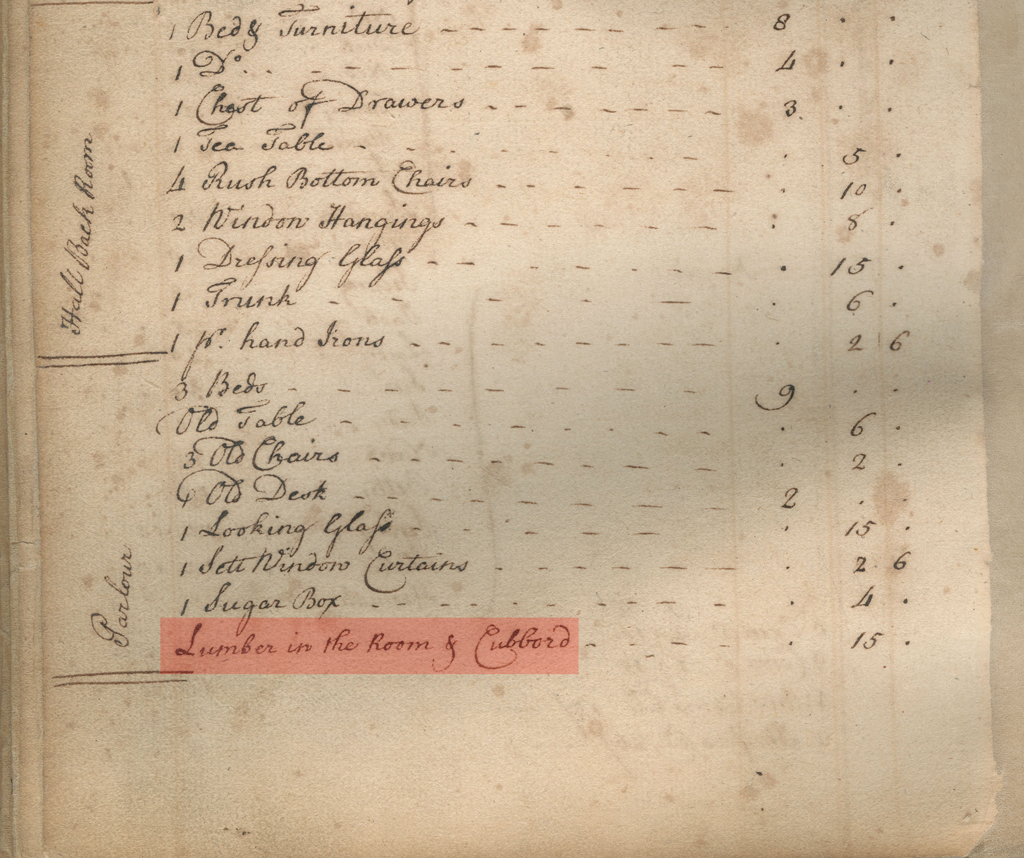 Hall Back Room
1 Bed & Furniture - - - - - - - 8 . .
1 Do. . - - - - - - - - - - 4 . .
1 Chest of Drawers - - - - - - - 3 . .
1 Tea Table - - - - - - - - . 5 .
4 Rush Bottom Chairs - - - - - - - . 10 .
2 Window Hangings - - - - - - - . 8 .
1 Dreſsing Glaſs - - - - - - - . 15 .
1 Trunk - - - - - - - . 6 .
1 pr. hand Irons - - - - - - - - . 2 6
Parlour
3 Beds - - - - - - - - - 9 . .
Old Table - - - - - - - - . 6 .
3 Old Chairs - - - - - - - - . 2 .
Old Desk - - - - - - - - 2 . .
1 Looking Glaſs - - - - - - - . 15 .
1 Sett Window Curtains - - - - - - - . 2 6
1 Sugar Box - - - - - - - - . 4 .
Lumber in the Room & Cubbord - - - - - . 15 .